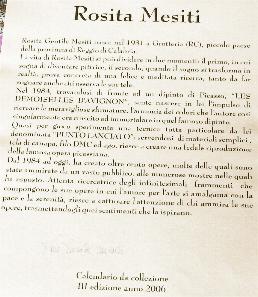 Rosita Mesiti
Rosita Gentile Mesiti nasce nel 1931 a Grotteria (RC), piccolo paese
della provincia di Reggio di Calabria.
La vita di Rosita Mesiti si può dividere in due momenti il primo, in cui
sogna di diventare pittrice, il secondo, quando il sogno si trasforma in
realtà, prova concreta di una felice e meditata ricerca, tanto da far
sognare anche chi osserva le sue tele.
Nel 1984, trovandosi di fronte ad un dipinto di Picasso, "LES
DEMOISELLES D'AVIGNON", sente nascere in lei l'impulso di
ricreare le meravigliose sfumature, l'armonia dei colori che l'autore così
singolarmente era riuscito ad immortalare in quel famoso dipinto.
Quasi per gioco sperimenta una tecnica tutta particolare da lei
denominata "PUNTO LANCIATO", servendosi di materiali semplici,
tela di canapa, filo DMC ed ago, riesce a creare una fedele riproduzione
della famosa opera picassiana.
Dal 1984 ad oggi, ha creato oltre cento opere, molte delle quali sono
state ammirate da un vasto pubblico, alle numerose mostre nelle quali
ha esposto. Attenta ricercatrice degli infinitesimali, frammenti che
compongono le sue opere in cui l'amore per l'arte si amalgama con la
pace e la serenità, riesce a catturare l'attenzione di chi ammira le sue
opere, trasmettendogli quei sentimenti che la ispirano.
Calendario da collezione
III edizione anno 2006